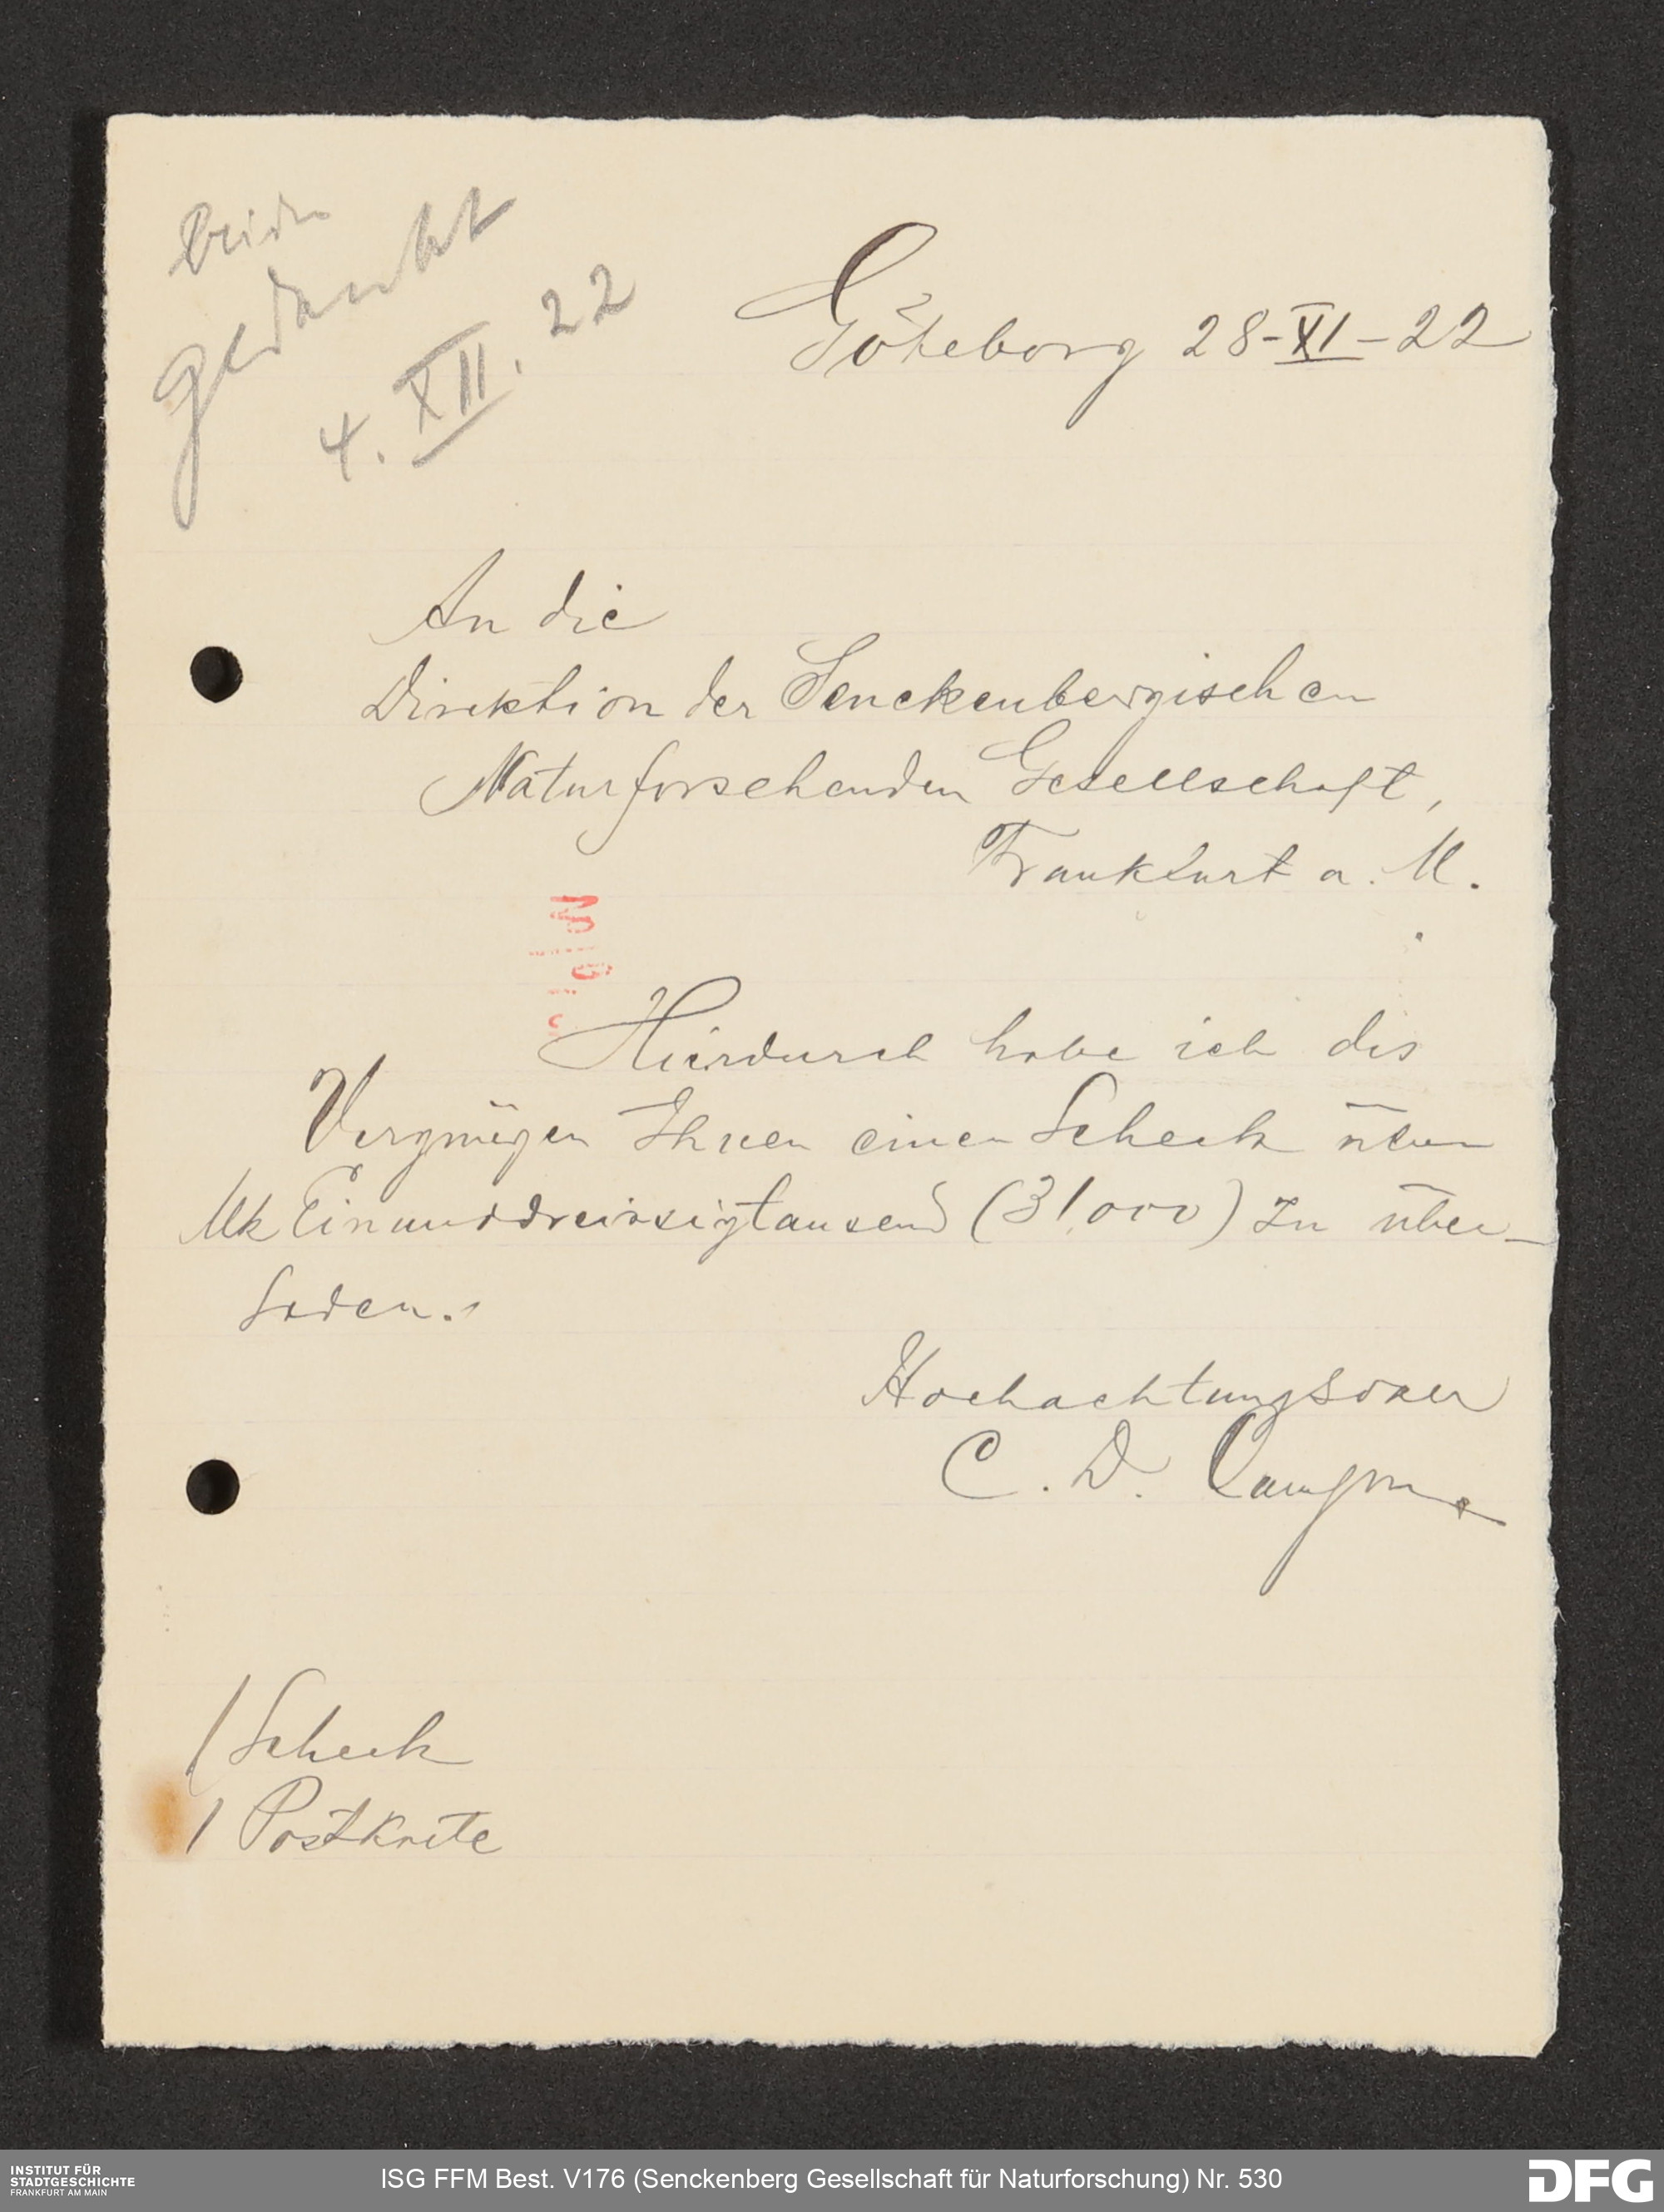 beiden
gedankt
4. XII. 22
Göteborg 28-XI-22
An die
Direktion der Senckenbergischen
Naturforschenden Gesellschaft,
Frankfurt a. M.
Hierdurch habe ich das
Vergnügen Ihnen einen Scheck über
Mk Einunddreissigtausend (31,000) zu über-
senden.
Hochachtungsvoll
C. D.
1 Scheck
1 Postkarte
INSTITUT FÜR
STADTGESCHICHTE
FRANKFURT AM MAIN
ISG FFM Best. V176 (Senckenberg Gesellschaft für Naturforschung) Nr. 530
DFG